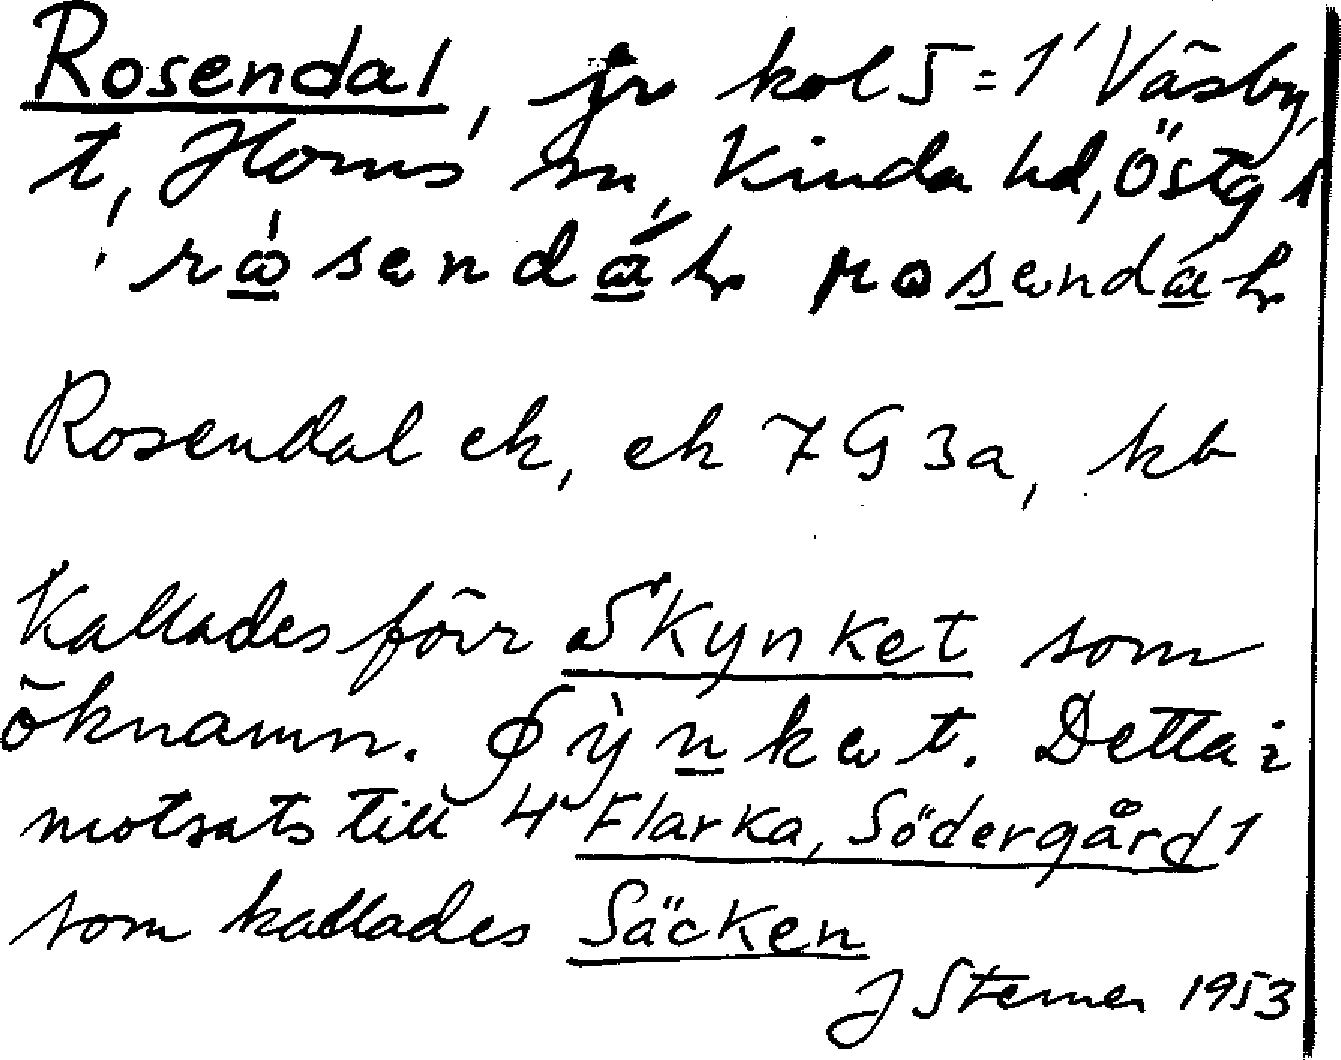 Rosendal, fr kol 5 = 1 Väsby,
t, Horns sn, Kinda hd, Östg l
Rosendal ek, ek 7G 3a, kb
Kallades förr Skynket som
öknamn. Detta i
motsats till 4 Flarka, Södergård 1
som kallades Säcken
J Sterner 1953